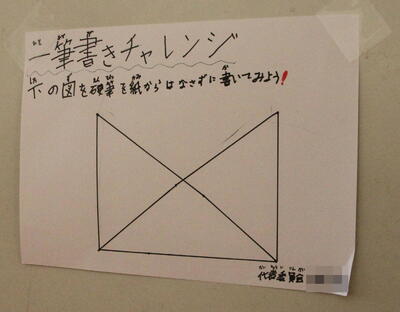 一筆書きチャレンジ
下の図を硬筆を紙からはなさずに書いてみよう!
代表委員会